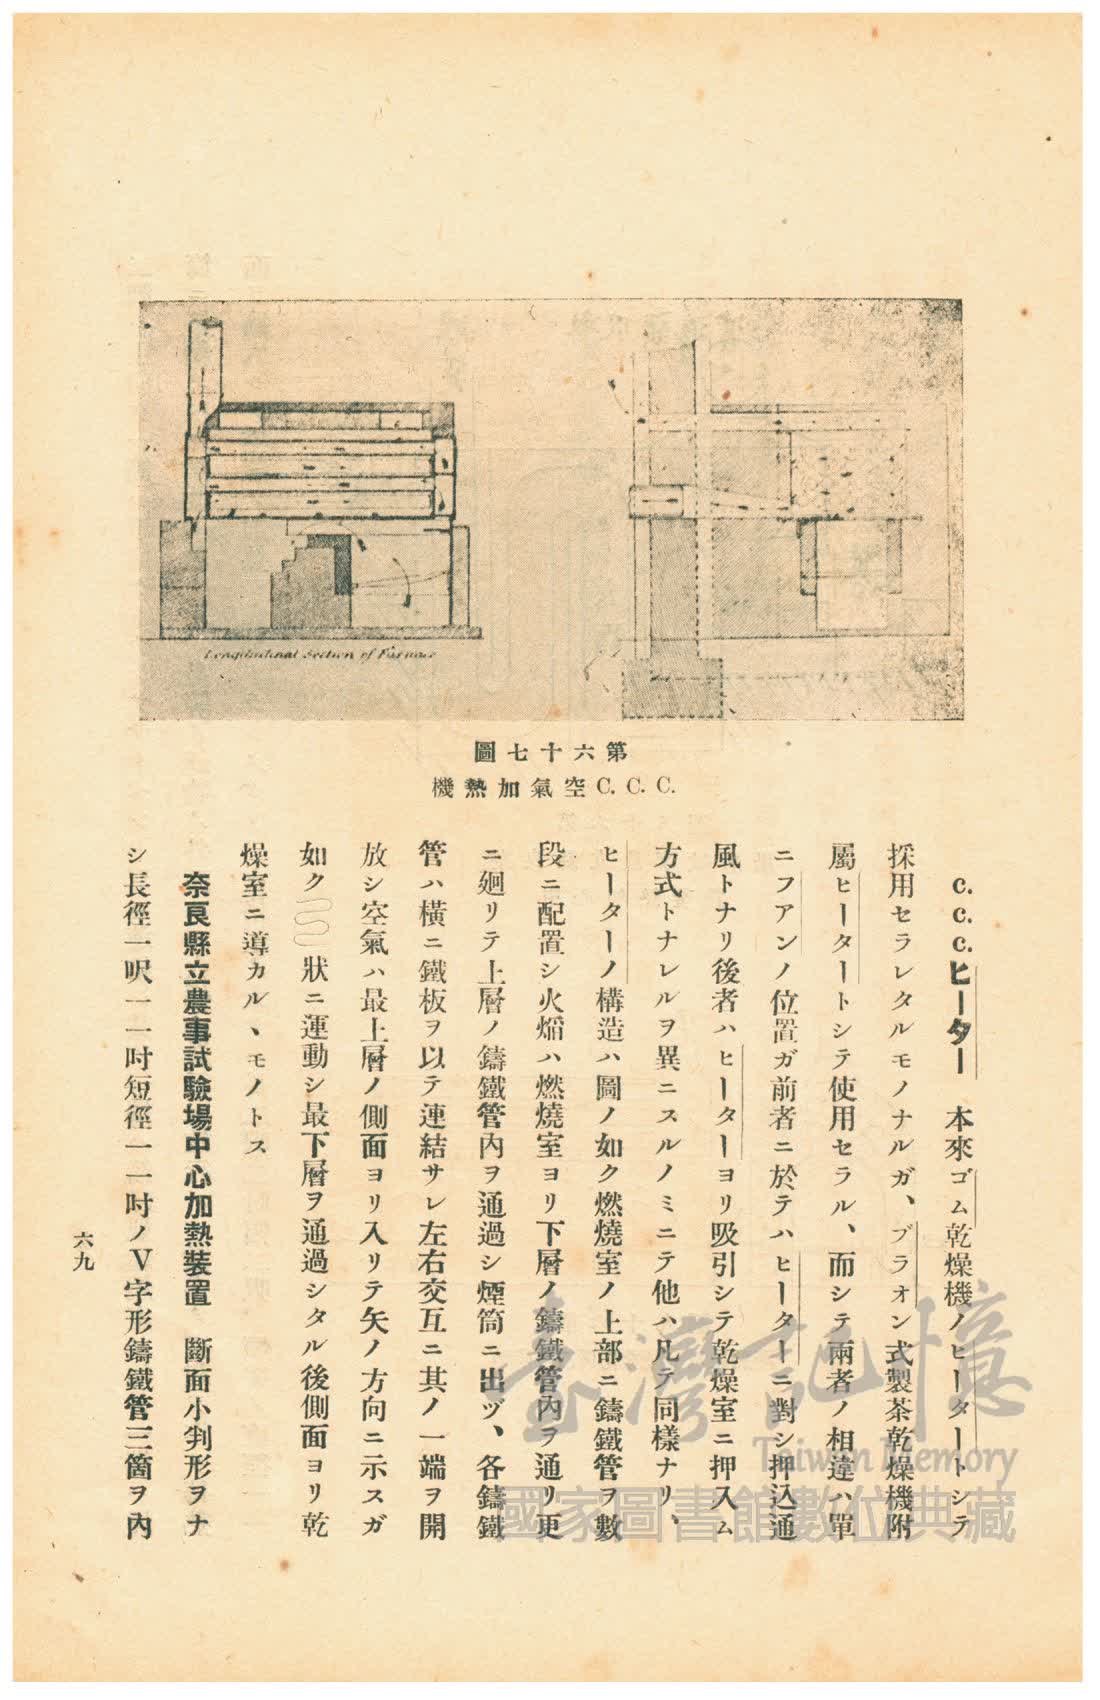 Longitudinal Section of Furnace
第六十七圖
C. C. C. 空氣加熱機
C. C. C. ヒーター　本來ゴム乾燥機ノヒータートシテ
採用セラレタルモノナルガ、ブラオン式製茶乾燥機附
屬ヒータートシテ使用セラル、而シテ兩者ノ相違ハ單
ニフアンノ位置ガ前者ニ於テハヒーターニ對シ押込通
風トナリ後者ハヒーターヨリ吸引シテ乾燥室ニ押入ム
方式トナレルヲ異ニスルノミニテ他ハ凡テ同樣ナリ、
ヒーターノ構造ハ圖ノ如ク燃燒室ノ上部ニ鑄鐵管ヲ數
段ニ配置シ火焰ハ燃燒室ヨリ下層ノ鑄鐵管內ヲ通リ更
ニ廻リテ上層ノ鑄鐵管內ヲ通過シ煙筒ニ出ヅ、各鑄鐵
管ハ橫ニ鐵板ヲ以テ連結サレ左右交互ニ其ノ一端ヲ開
放シ空氣ハ最上層ノ側面ヨリ入リテ矢ノ方向ニ示スガ
如ク狀ニ運動シ最下層ヲ通過シタル後側面ヨリ乾
燥室ニ導カル、モノトス
奈良縣立農事試驗場中心加熱裝置　斷面小判形ヲナ
シ長徑一呎一一吋短徑一一吋ノV字形鑄鐵管三箇ヲ內
六九
臺灣記憶
Taiwan Memory
國家圖書館數位典藏